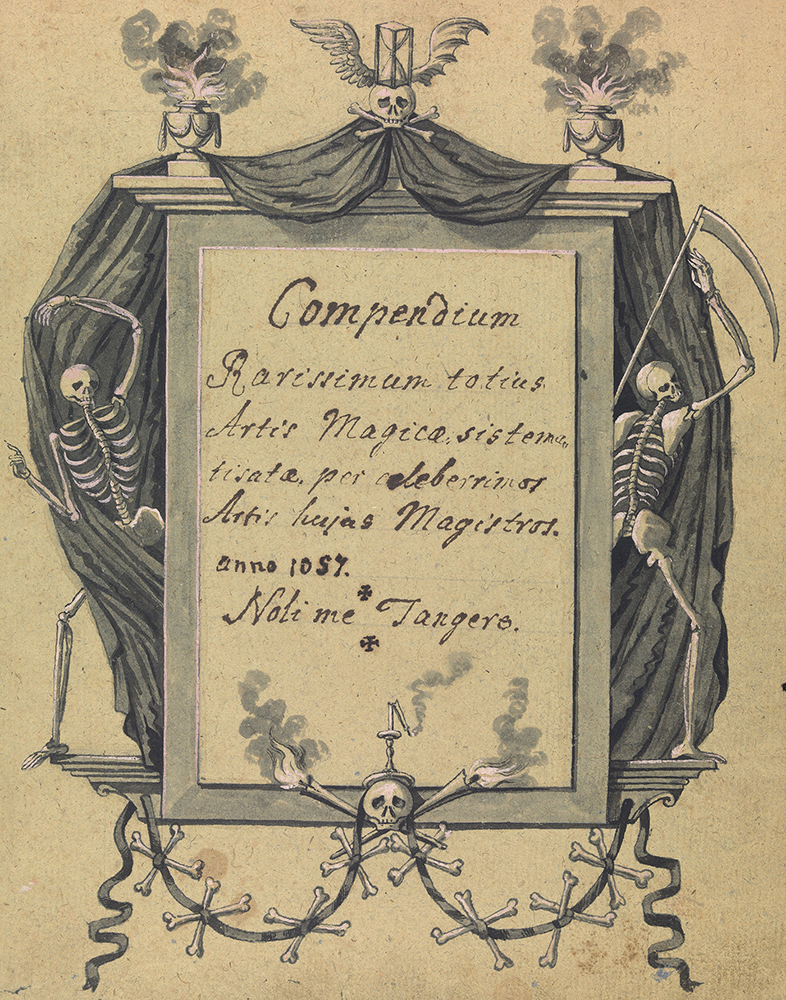 Compendium
Rarissimum totius
Artis Magicæ, sistema-
tisatæ, per celeberrimos
Artis hujus Magistros.
anno 1057.
Noli me Tangere.